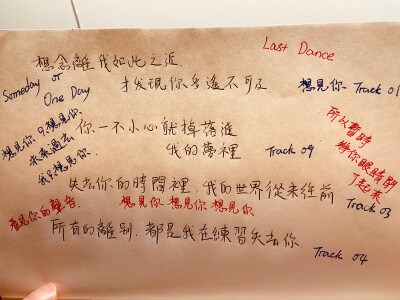 Last Dance
想念離我如此之近
才發現你多遙不可及
想見你 Track 01
Someday or
One Day
想見你只想見你
未來過去
我只想見你
你一不小心就掉落進
我的夢裡
Track 09
所以暫時
將你眼睛閉
了起來
失去你的時間裡,我的世界從未往前
Track 03
看見你的聲音
想見你 想見你 想見你
所有的離別,都是我在練習失去你
Track 04